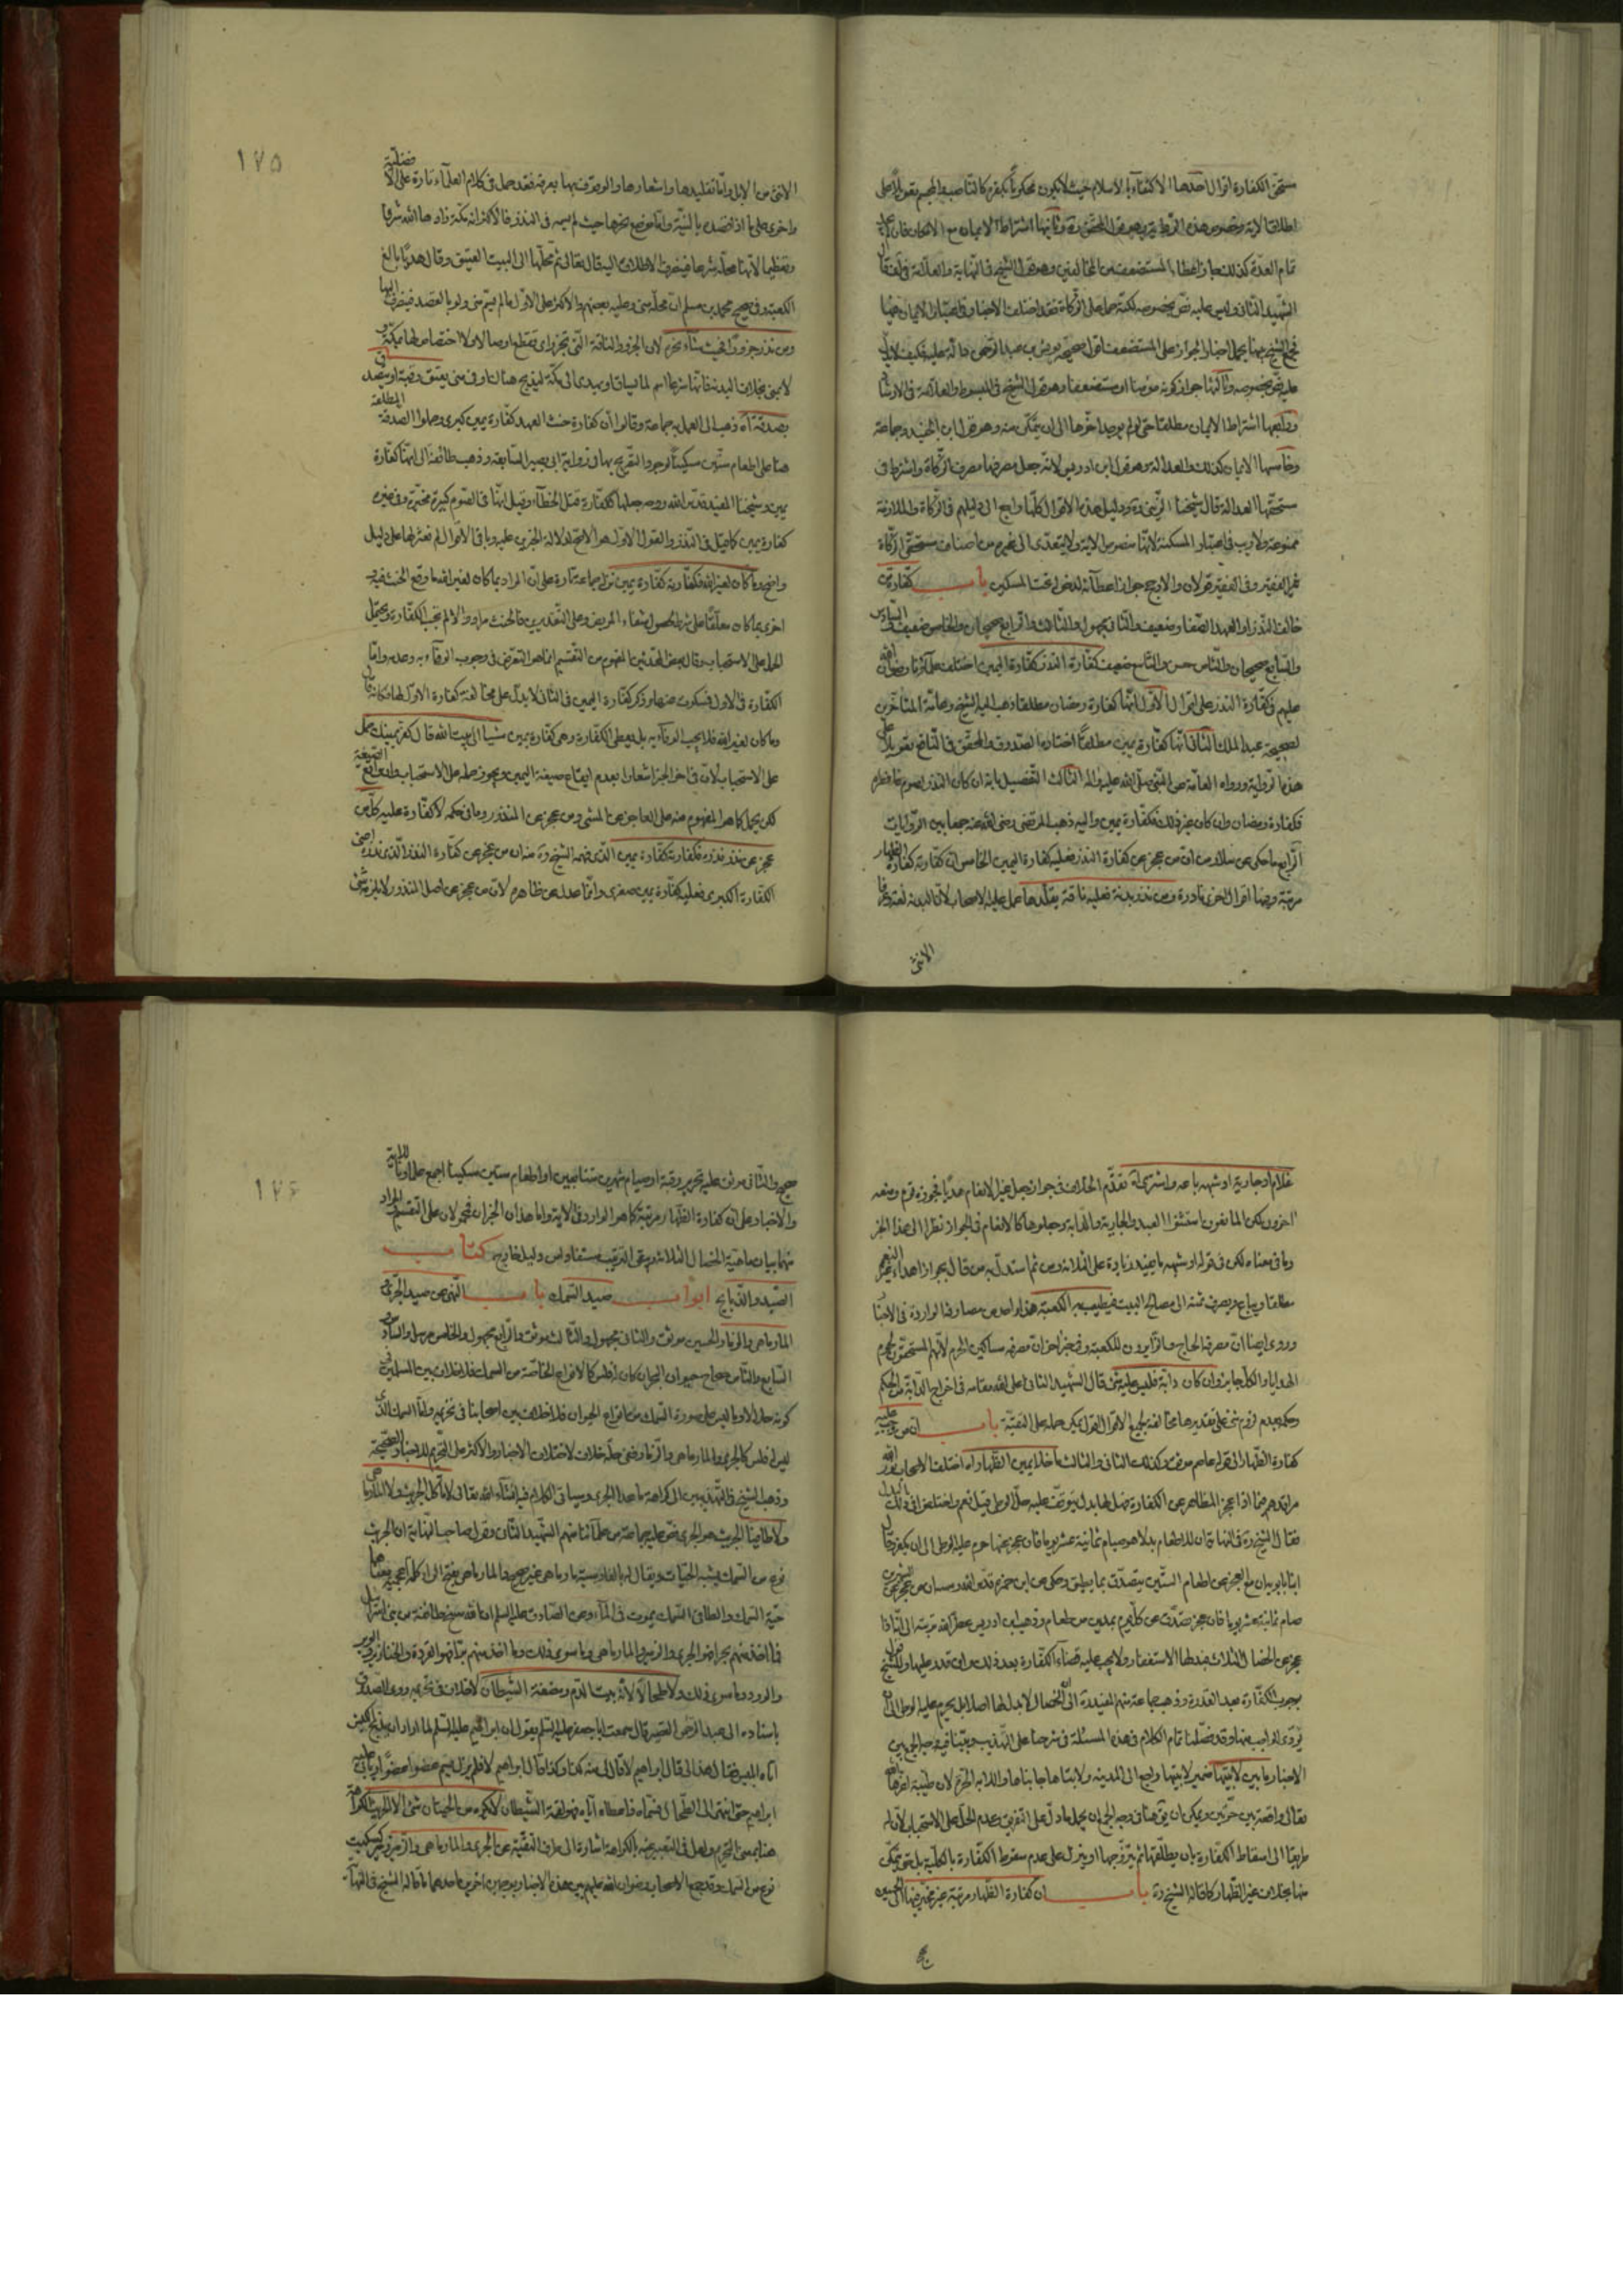 مستحق الكفارة اقوال احدها الاكتفاء بالاسلام حيث لا يكون محكوما بكفره كالناصب والمجسم
اطلاق الآية وخصوص هذه الرواية وهو قول المحقق ره وثانيها اشتراط الايمان مع الامكان فان
تمام العدة كذلك فيجوز اعطاء المستضعف من المخالفين وهو قول الشيخ في النهاية والعلامة في
الشهيد الثاني وليس عليه نص بخصوصه لكنه حمل على الزكاة فقد اختلفت الاخبار في اعتبار الايمان فيها
عليه نص بخصوصه وثالثها جواز كونه مؤمنا او مستضعفا وهو قول الشيخ في المبسوط والعلامة في الارشاد
ورابعها اشتراط الايمان مطلقا حتى لو لم يوجد اخرها الى ان يتمكن منه وهو قول ابن الجنيد وجماعة
وخامسها الايمان كذلك والعدالة وهو قول ابن ادريس لانه جعل مصرفها مصرف الزكاة واشترط في
مستحقها العدالة قال شيخنا الزيني ره ودليل هذه الاقوال كلها راجع الى دليلهم في الزكاة والملازمة
ممنوعة ولا ريب في اعتبار المسكنة لانها منصوص الآية ولا يتعدى الى غيرهم من اصناف مستحقي الزكاة
غير الفقير وفي الفقير قولان والاوجه جواز اعطائه لدخوله تحت المسكين باب كفارة من
خالف النذر او العهد الصفار ضعيف والثاني مجهول والثالث والرابع صحيحان والخامس ضعيف والسادس
والسابع صحيحان والثامن حسن والتاسع ضعيف كفارة النذر كفارة اليمين اختلف علماؤنا رضوان الله
عليهم في كفارة النذر على اقوال الاول انها كفارة رمضان مطلقا ذهب اليه الشيخ وعامة المتاخرين
لصحيحة عبد الملك الثاني انها كفارة يمين مطلقا اختاره الصدوق والمحقق في النافع تعويلا على
هذه الرواية ورواه العامة عن النبي صلى الله عليه واله الثالث التفصيل بانه ان كان النذر لصوم فافطره
فكفارة رمضان وان كان غير ذلك فكفارة يمين واليه ذهب المرتضى رضي الله عنه جمعا بين الروايات
الرابع ما حكي عن سلار من ان من عجز عن كفارة النذر فعليه كفارة اليمين الخامس ان كفارته كفارة الظهار
مرتبة وفيها اقوال اخرى نادرة ومن نذر بدنة فعليه ناقة يقلدها عمل عليه الاصحاب لان البدنة لغة وعرفا
الانثى
١٧٥
الانثى من الابل واما تقليدها واشعارها والوقوف بها بعرفة فقد حمل في كلام العلماء تارة على الافضلية
واخرى على ما اذا قصد بالنية واما موضع نحرها حيث لم يسمه في النذر فالاكثر انه مكة زادها الله شرفا
وتعظيما لانها محله شرعا فينصرف الاطلاق اليه قال تعالى ثم محلها الى البيت العتيق وقال هديا بالغ
الكعبة وفي صحيح محمد بن مسلم ان محله منى وعليه بعضهم والاكثر على الاول ما لم يسم منى ولو بالقصد فينصرف اليها
ومن نذر جزورا فحيث شاء نحره لان الجزور الناقة التي تجزر اي تقطع اوصالا ولا اختصاص لها بمكة
لا منى بخلاف البدنة فانها شرعا اسم لما يساق ويهدى الى مكة ليذبح هناك او في منى يعتق رقبة او يتصدق
بصدقة اه ذهب الى العمل به جماعة وقالوا ان كفارة حنث العهد كفارة يمين كبرى وحملوا الصدقة المطلقة
هنا على اطعام ستين مسكينا لوجود التصريح بها في رواية ابي بصير السابقة وذهب طائفة الى انها كفارة
يمين وشيخنا المفيد قدس الله روحه جعلها ككفارة قتل الخطاء وقيل انها في الصوم كبيرة مخيرة وفي غيره
كفارة يمين كما قيل في النذر والقول الاول هو الاصح لدلالة الخبرين عليه وباقي الاقوال لم نعثر لها على دليل
واضح وما كان لغير الله فكفارته كفارة يمين نزله جماعة تارة على ان المراد بما كان لغير الله ما وقع الحنث فيه
اخرى بما كان معلقا على شرط كحصول شفاء المريض وعلى التقديرين فالحنث مراد والا لم تجب الكفارة ويحتمل
الحمل على الاستحباب وقال بعض المحدثين المفهوم من التقسيم انما هو التعرض في وجوب الوفاء به وعدمه واما
الكفارة في الاول فسكوت عنها وذكر كفارة اليمين في الثاني لا يدل على مخالفته كفارة الاول لها فكانه قال
وما كان لغير الله فلا يجب الوفاء به بل يعطي الكفارة وهي كفارة يمين مشيا الى بيت الله قال كفر يمينك حمل
على الاستحباب لان في اخر الخبر اشعارا بعدم ايقاع صيغة اليمين ويجوز حمله على الاستحباب وايقاع الصيغة
لكن يحمل كما هو المفهوم منه على العاجز عن المشي ومن عجز عن المنذور وما في حكمه لا كفارة عليه كل من
عجز عن نذر نذره فكفارته كفارة يمين الذي فهمه الشيخ ره منه ان من عجز عن كفارة النذر الذي نذره اعني
الكفارة الكبرى فعليه كفارة يمين صغرى وانما عدل عن ظاهره لان من عجز عن اصل المنذور لا يلزمه شيء
غلام او جارية او شبهه باعه واشترى به اه تقدم الخلاف في جواز جعل غير الانعام هديا فجوزه قوم ومنعه
اخرون لكن المانعون استثنوا العبد والجارية والدابة وجعلوها كالانعام في الجواز نظرا الى هذا الخبر
وما في معناه لكن في قوله او شبهه ما يفيد زيادة على الثلاثة ومن ثم استدل به من قال بجواز اهداء غير النعم
مطلقا ويباع ويصرف ثمنه الى مصالح البيت فيطيب به الكعبة هذا واحد من مصارفها الواردة في الاخبار
وروي ايضا ان مصرفه الحاج والزايرون للكعبة وفي خبر اخر ان مصرفه مساكين الحرم لانهم المستحقون لحرم
الهدايا والكل جايز وان كان دابة فليس عليه شيء قال الشهيد الثاني اعلى الله مقامه في اخراج الدابة من الحكم
وحكمه بعدم لزوم شيء على تقديرها مخالفة لجميع الاقوال اقول يمكن حمله على التقية باب ان من وجب عليه
كفارة الظهار الى قوله عاصم موثق وكذلك الثاني والثالث ما خلا يمين الظهار اه اختلف الاصحاب نور الله
مراقدهم فيما اذا عجز المظاهر عن الكفارة فهل لها بدل يتوقف عليه حل الوطي قيل نعم واختلفوا في ذلك البدل
فقال الشيخ ره في النهاية ان للاطعام بدلا هو صيام ثمانية عشر يوما فان عجز عنها حرم عليه الوطي الى ان يكفر وقال
ابنا بابويه ان مع العجز عن اطعام الستين يتصدق بما يطيق وحكي عن ابن حمزه قدس الله روحه ان من عجز عن الشهرين
صام ثمانية عشر يوما فان عجز تصدق عن كل يوم بمدين من طعام وذهب ابن ادريس عطر الله مرقده الى انه اذا
عجز عن الخصال الثلاث فبدلها الاستغفار ولا يجب عليه قضاء الكفارة بعد ذلك وان قدر عليها وللشيخ قول
بوجوب الكفارة بعد القدرة وذهب جماعة منهم المفيد ره الى ان الخصال لا بدل لها اصلا بل يحرم عليه الوطي الى ان
يؤدي الواجب منها وقد فصلنا تمام الكلام في هذه المسئلة في شرحنا على التهذيب وبينا فيه وجه الجمع بين
الاخبار ما بين لابتيها ضمير لابتيها راجع الى المدينة ولابتاها جانباها واللابه الحرة لان طيبة اعزها الله
تعالى واقعة بين حرتين ويمكن ان يق هنا في وجه الجمع ان يحمل ما دل على التفريق وعدم الحل على الاستحباب لان له
طريقا الى اسقاط الكفارة بان يطلقها ثم يتزوجها او ينزل على عدم سقوط الكفارة بالكلية بل متى تمكن
منها بخلاف غير الظهار كما قاله الشيخ ره باب ان كفارة الظهار مرتبة غير مخير فيها الحسين
صحيح
١٧٦
صحيح والثاني موثق عليه تحرير رقبة او صيام شهرين متتابعين او اطعام ستين مسكينا اجمع علماؤنا
والاخبار على ان كفارة الظهار مرتبة كما هو الوارد في الآية واما هذان الخبران فمحمولان على التقسيم المراد
منها بيان ماهية الخصال الثلاثة وبقي الترتيب مستفادا من دليل خارج كتاب
الصيد والذبايح ابواب صيد السمك باب النهي عن صيد الجري
المارماهي والزمار الحسين موثق والثاني مجهول والثالث موثق والرابع مجهول والخامس مرسل والسادس
السابع والثامن صحاح حيوان البحر ان كان له فلس كالانواع الخاصة من السمك فلا خلاف بين المسلمين في
كونه حلالا وما ليس على صورة السمك من انواع الحيوان فلا خلاف بين اصحابنا في تحريمه واما السمك الذي
ليس له فلس كالجري والمارماهي والزمار ففي حله خلاف لاختلاف الاخبار والاكثر على التحريم للاخبار الصحيحة
وذهب الشيخ في التهذيب الى كراهة ما عدا الجري وسياتي الكلام فيه انشاء الله تعالى لا تاكل الجريث ولا المارماهي
ولا طافيا الجريث هو الجري نص عليه جماعة من علمائنا منهم الشهيد الثاني وقول صاحب النهاية ان الجريث
نوع من السمك يشبه الحيات ويقال له بالفارسية مارماهي غير صحيح والمارماهي بفتح الراء كلمة اعجمية معناها
حية السمك والطافي السمك يموت في الماء وعن الصادق عليه السلام ان الله مسخ طائفة من بني اسرائيل
فما اخذ منهم بحرا فهو الجري والزمير والمارماهي وما سوى ذلك وما اخذ منهم برا فهو القردة والخنازير والوبر
والورل وما سوى ذلك ولا طحالا لانه بيت الدم ومضغة الشيطان لا خلاف في تحريمه وروى الصدوق
باسناده الى عبد الرحمن القصير قال سمعت ابا جعفر عليه السلم يقول ان ابراهيم عليه السلم لما اراد ان يذبح الكبش
اتاه ابليس فقال هذا لي قال ابراهيم لا قال لي منه كذا وكذا قال ابراهيم لا فلم يزل يسمي عضوا عضوا ويابى عليه
ابراهيم حتى انتهى الى الطحال فسماه فاعطاه اياه فهو لقمة الشيطان لا تكره من الحيتان شيء الا الجريث الكراهة
هنا بمعنى التحريم ولعل في التعبير عنه بالكراهة اشارة الى طرف التقية عن الجري والمارماهي والزمير كسكيت
نوع من السمك وقد جمع الاصحاب رضوان الله عليهم بين هذه الاخبار بوجهين احدهما ما قاله الشيخ في النهاية